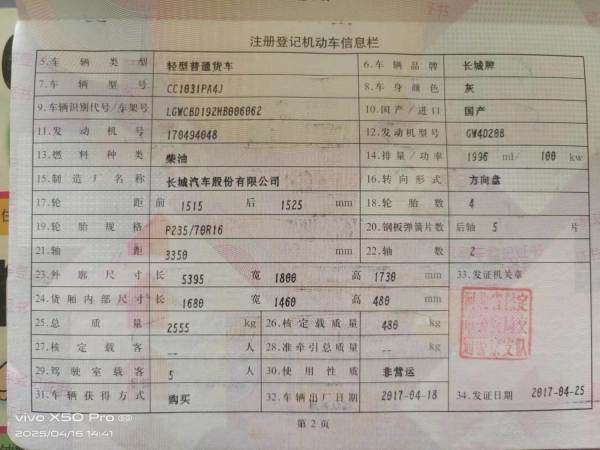 注册登记机动车信息栏
5.车辆类型 轻型普通货车 6.车辆品牌 长城牌
7.车辆型号 CC1031PA4J 8.车身颜色 灰
9.车辆识别代号/车架号 LGWCBD192HB006062 10.国产/进口 国产
11.发动机号 170494048 12.发动机型号 GW4D20B
13.燃料种类 柴油 14.排量/功率 1996 ml/ 100 kw
15.制造厂名称 长城汽车股份有限公司 16.转向形式 方向盘
17.轮距 前 1515 后 1525 mm 18.轮胎数 4
19.轮胎规格 P235/70R16 20.钢板弹簧片数 后轴 5 片
21.轴距 3350 mm 22.轴数 2
23.外廓尺寸 长 5395 宽 1800 高 1730 mm 33.发证机关章
24.货厢内部尺寸 长 1680 宽 1460 高 480 mm
25.总质量 2555 kg 26.核定载质量 480 kg
27.核定载客 -- 人 28.准牵引总质量 -- kg
29.驾驶室载客 5 人 30.使用性质 非营运
31.车辆获得方式 购买 32.车辆出厂日期 2017-04-18 34.发证日期 2017-04-25
第2页
vivo X50 Pro
2025/04/16 14:41